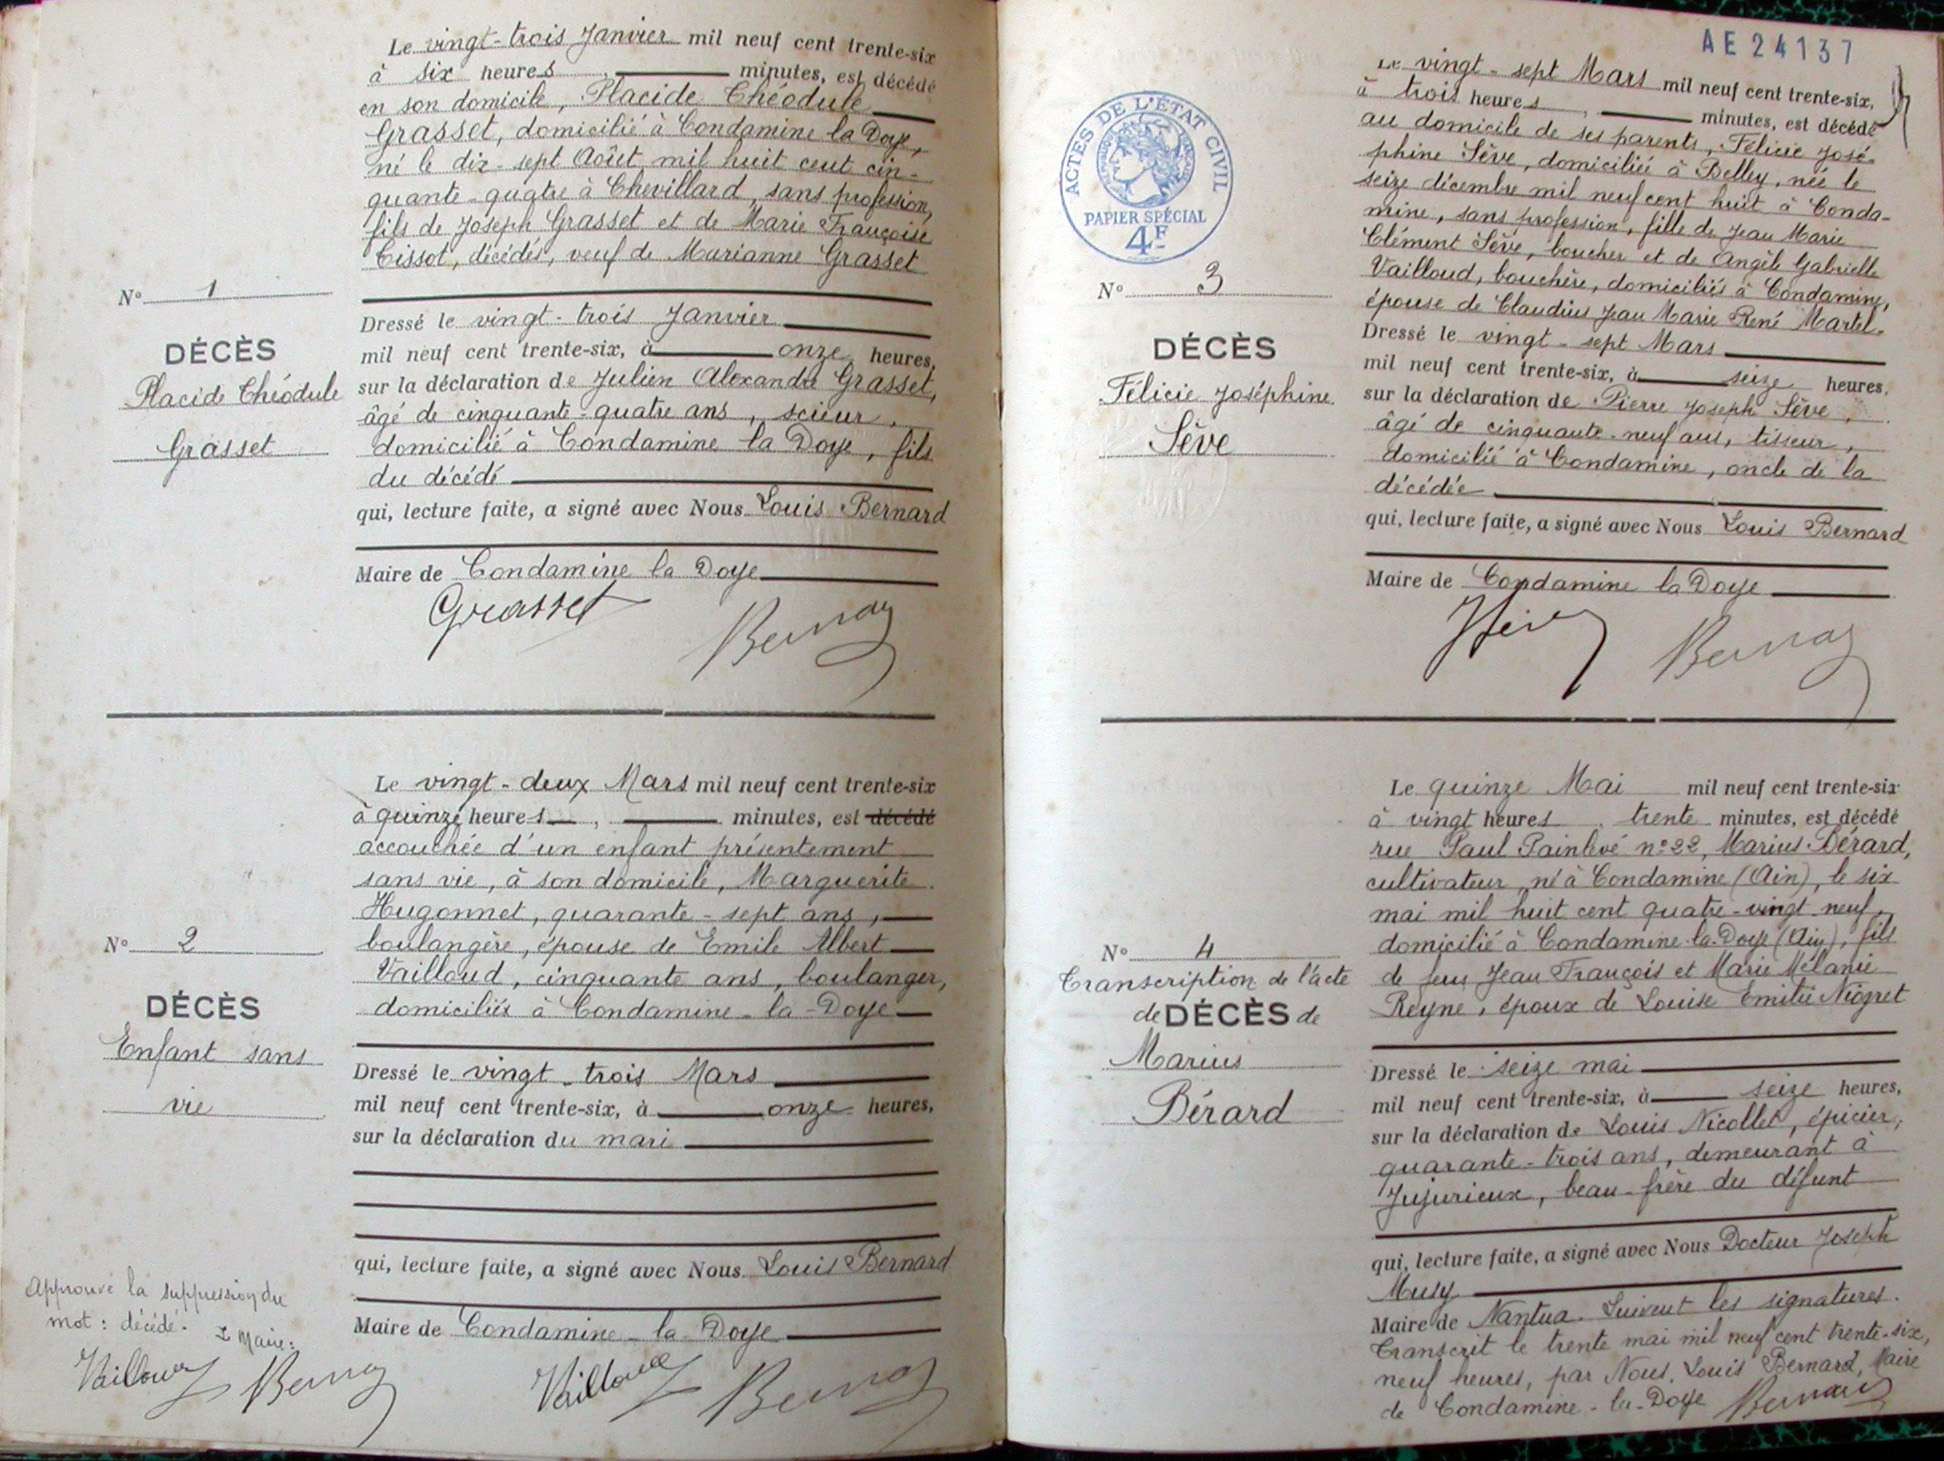 Le vingt-trois Janvier mil neuf cent trente-six
à six heures, minutes, est décédé
en son domicile, Placide Théodule
Grasset, domicilié à Condamine la Doye,
né le dix-sept Août mil huit cent cin-
quante-quatre à Chevillard, sans profession,
fils de Joseph Grasset et de Marie Françoise
Tissot, décédés, veuf de Marianne Grasset
N° 1
DÉCÈS
Placide Théodule
Grasset
Dressé le vingt-trois Janvier
mil neuf cent trente-six, à onze heures,
sur la déclaration de Julien Alexandre Grasset,
âgé de cinquante-quatre ans, scieur,
domicilié à Condamine la Doye, fils
du décédé
qui, lecture faite, a signé avec Nous Louis Bernard
Maire de Condamine la Doye
Grasset Bernard
Le vingt-deux Mars mil neuf cent trente-six
à quinze heures, minutes, est décédé
accouchée d'un enfant présentement
sans vie, à son domicile, Marguerite
Hugonnet, quarante-sept ans,
boulangère, épouse de Emile Albert
Vailloud, cinquante ans, boulanger,
domiciliés à Condamine-la-Doye
N° 2
DÉCÈS
Enfant sans
vie
Dressé le vingt-trois Mars
mil neuf cent trente-six, à onze heures,
sur la déclaration du mari
qui, lecture faite, a signé avec Nous Louis Bernard
Maire de Condamine-la-Doye
Approuvé la suppression du
mot: décédé.
Le Maire:
Vailloud Bernard
Vailloud Bernard
AE 24137
ACTES DE L'ÉTAT CIVIL
PAPIER SPÉCIAL
4F
Le vingt-sept Mars mil neuf cent trente-six,
à trois heures, minutes, est décédé
au domicile de ses parents, Félicie José-
phine Sève, domiciliée à Belley, née le
seize décembre mil neuf cent huit à Conda-
mine, sans profession, fille de Jean Marie
Clément Sève, boucher et de Angèle Gabrielle
Vailloud, bouchère, domiciliés à Condamine,
épouse de Claudius Jean Marie René Martel.
N° 3
DÉCÈS
Félicie Joséphine
Sève
Dressé le vingt-sept Mars
mil neuf cent trente-six, à seize heures,
sur la déclaration de Pierre Joseph Sève,
âgé de cinquante-neuf ans, tisseur,
domicilié à Condamine, oncle de la
décédée
qui, lecture faite, a signé avec Nous Louis Bernard
Maire de Condamine la Doye
JSève Bernard
Le quinze Mai mil neuf cent trente-six
à vingt heures, trente minutes, est décédé
rue Paul Painlevé n°22, Marius Bérard,
cultivateur, né à Condamine (Ain), le six
mai mil huit cent quatre-vingt-neuf,
domicilié à Condamine-la-Doye (Ain), fils
de feus Jean François et Marie Mélanie
Reyne, époux de Louise Emilie Niogret
N° 4
Transcription de l'acte
de DÉCÈS de
Marius
Bérard
Dressé le seize mai
mil neuf cent trente-six, à seize heures,
sur la déclaration de Louis Nicollet, épicier,
quarante-trois ans, demeurant à
Jujurieux, beau-frère du défunt
qui, lecture faite, a signé avec Nous Docteur Joseph
Musy
Maire de Nantua. Suivent les signatures.
Transcrit le trente mai mil neuf cent trente-six,
neuf heures, par Nous, Louis Bernard, Maire
de Condamine-la-Doye Bernard